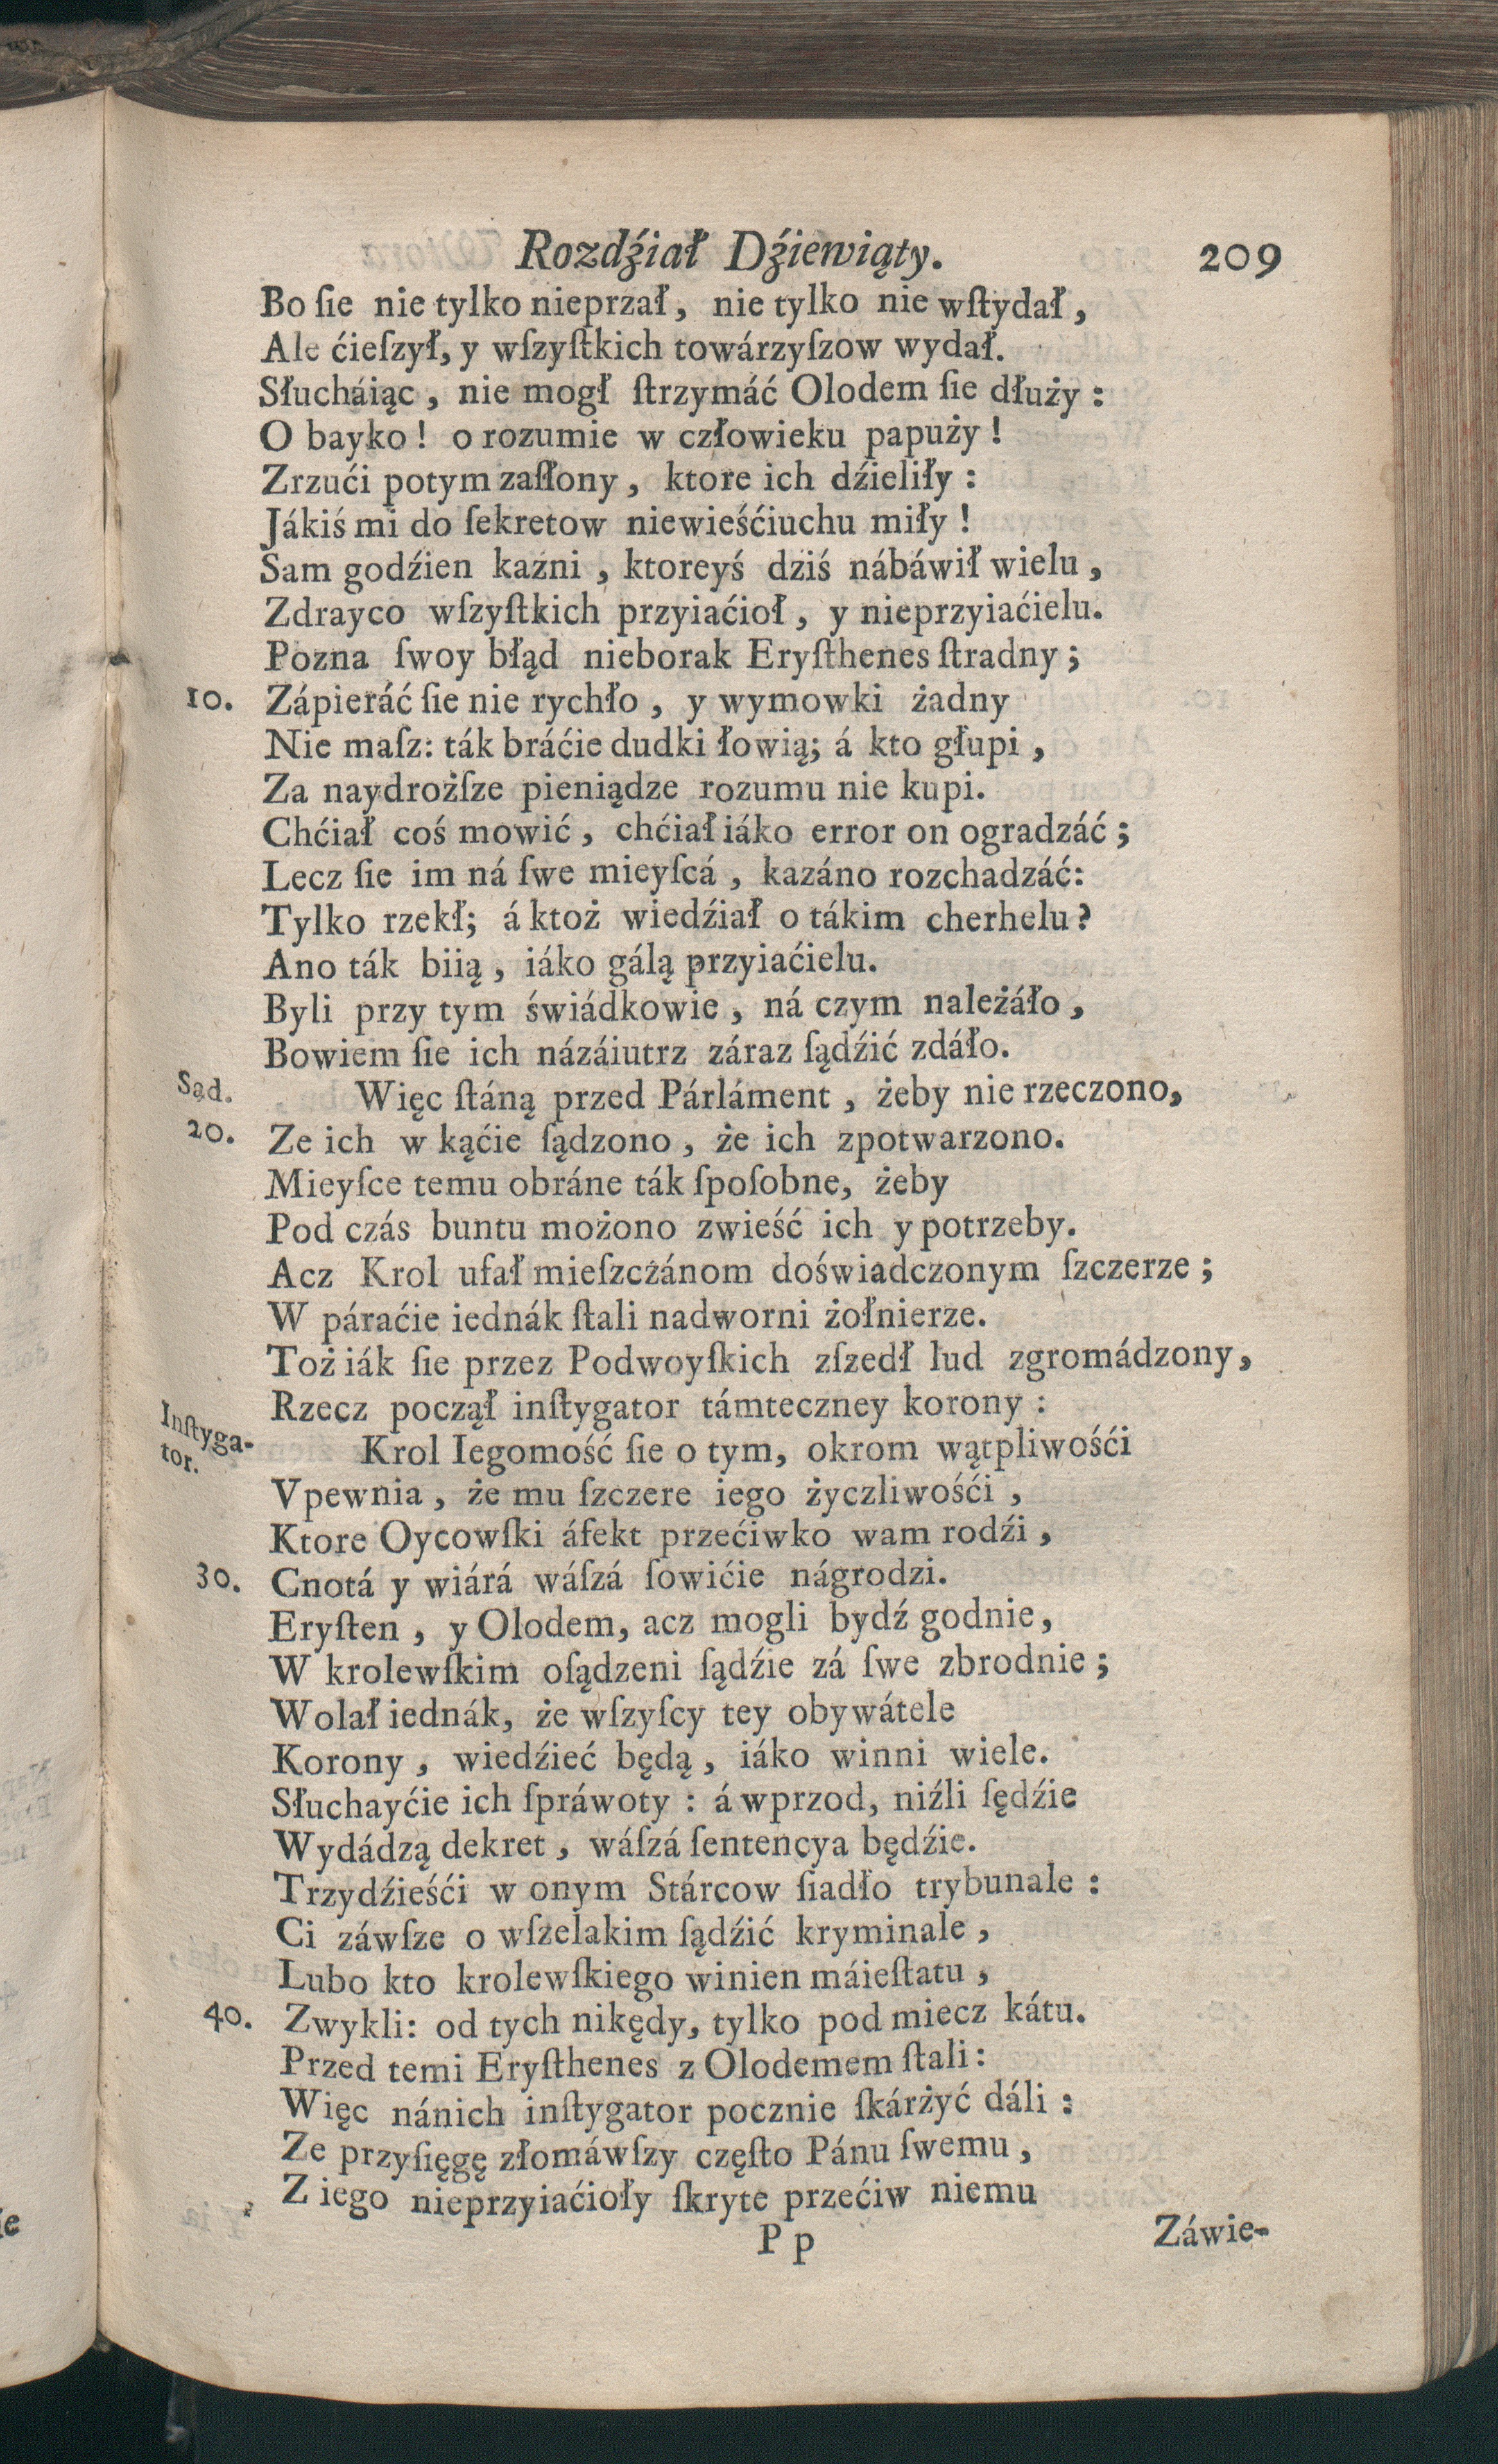 Rozdźiał Dźiewiąty. 209
Bo ſie nie tylko nieprzał, nie tylko nie wſtydał,
Ale ćieſzył, y wſzyſtkich towárzyſzow wydał.
Słucháiąc, nie mogł ſtrzymáć Olodem ſie dłuży:
O bayko! o rozumie w człowieku papuży!
Zrzući potym zaſłony, ktore ich dźieliły:
Jákiś mi do ſekretow niewieśćiuchu miły!
Sam godźien kaźni, ktoreyś dziś nábáwił wielu,
Zdrayco wſzyſtkich przyiaćioł, y nieprzyiaćielu.
Pozna ſwoy błąd nieborak Eryſthenes ſtradny;
10. Zápieráć ſie nie rychło, y wymowki żadny
Nie maſz: ták bráćie dudki łowią; á kto głupi,
Za naydrożſze pieniądze rozumu nie kupi.
Chćiał coś mowić, chćiał iáko error on ogradzáć;
Lecz ſie im ná ſwe mieyſcá, kazáno rozchadzáć:
Tylko rzekł; á ktoż wiedźiał o tákim cherhelu?
Ano ták biią, iáko gálą przyiaćielu.
Byli przy tym świádkowie, ná czym należáło,
Bowiem ſie ich názáiutrz záraz ſądźić zdáło.
Sąd. Więc ſtáną przed Párláment, żeby nie rzeczono,
20. Ze ich w kąćie ſądzono, że ich zpotwarzono.
Mieyſce temu obráne ták ſpoſobne, żeby
Pod czás buntu możono zwieść ich y potrzeby.
Acz Krol ufał mieſzcżánom doświadczonym ſzczerze;
W páraćie iednák ſtali nadworni żołnierze.
Toż iák ſie przez Podwoyſkich zſzedł lud zgromádzony,
Rzecz począł inſtygator támteczney korony:
Inſtyga-
tor.
Krol Iegomość ſie o tym, okrom wątpliwośći
Vpewnia, że mu ſzczere iego życzliwośći,
Ktore Oycowſki áfekt przećiwko wam rodźi,
30. Cnotá y wiárá wáſzá ſowićie nágrodzi.
Eryſten, y Olodem, acz mogli bydź godnie,
W krolewſkim oſądzeni ſądźie zá ſwe zbrodnie;
Wolał iednák, że wſzyſcy tey obywátele
Korony, wiedźieć będą, iáko winni wiele.
Słuchayćie ich ſpráwoty: á wprzod, niźli ſędźie
Wydádzą dekret, wáſzá ſentencya będźie.
Trzydźieśći w onym Stárcow ſiadło trybunale:
Ci záwſze o wſzelakim ſądźić kryminale,
Lubo kto krolewſkiego winien máieſtatu,
40. Zwykli: od tych nikędy, tylko pod miecz kátu.
Przed temi Eryſthenes z Olodemem ſtali:
Więc nánich inſtygator pocznie ſkárżyć dáli:
Ze przyſięgę złomáwſzy częſto Pánu ſwemu,
Z iego nieprzyiaćioły ſkryte przećiw niemu
Pp Záwie-